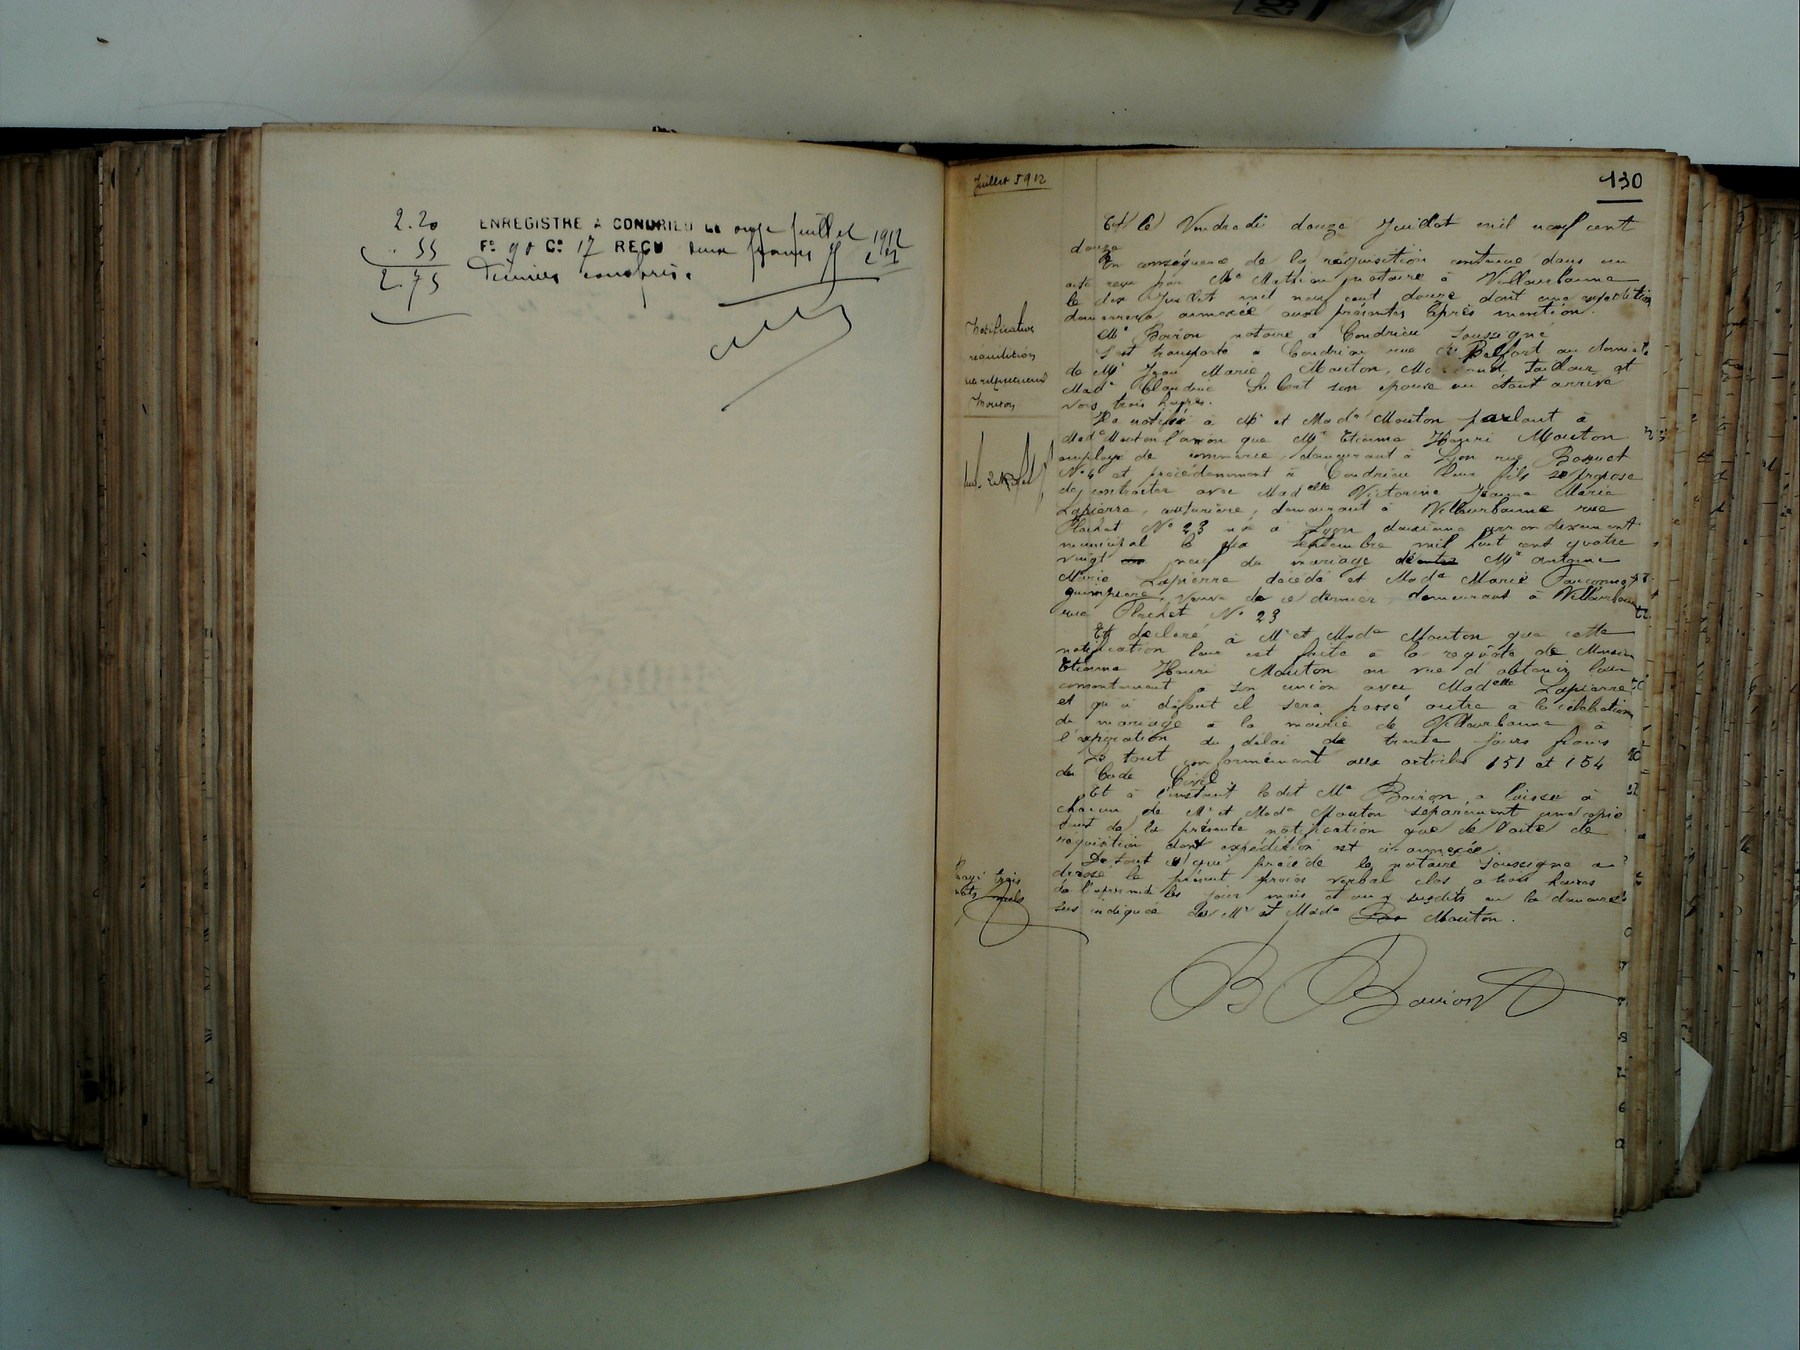 2.20
. 55
2.75
ENREGISTRE A CONDRIEU LE onze juillet 1912
F° 90 C° 17 REÇU deux francs
Décimes compris.
Juillet 1912
130
Et le Vendredi douze Juillet mil neuf cent
douze
En conséquence de la réquisition contenue dans un
acte reçu par Me Mathieu notaire à Villeurbanne
le dix Juillet mil neuf cent douze dont une expédition
demeurera annexée aux présentes après mention.
Me Boiron notaire à Condrieu soussigné
S'est transporté à Condrieu rue de Belfort au domicile
de Mr Jean Marie Mouton, Marchand Tailleur et
Made Claudine son épouse ou étant arrivé
vers trois heures.
Notification
réquisition
Mouton
Il a notifié à Mr et Made Mouton parlant à
Made Mouton que Mr Etienne Henri Mouton
employé de commerce, demeurant à Lyon rue Bossuet
N° 4 et précédemment à Condrieu leur fils se propose
de contracter avec Madelle Victorine Jeanne Marie
Lapierre, couturière, demeurant à Villeurbanne rue
Flachet N° 23 née à Lyon, deuxième arrondissement
municipal le dix Septembre mil huit cent quatre
vingt neuf du mariage d'entre Mr Antoine
Marie Lapierre décédé et Made Marie
veuve de ce dernier, demeurant à Villeurbanne
rue Flachet N° 23
Et déclaré à Mr et Made Mouton que cette
notification leur est faite à la requête de Monsieur
Etienne Henri Mouton en vue d'obtenir leur
consentement à son union avec Madelle Lapierre
et qu'à défaut il sera passé outre à la célébration
du mariage à la mairie de Villeurbanne à
l'expiration du délai de trente jours francs
Le tout conformément aux articles 151 et 154
du Code Civil
Et à l'instant ledit Me Boiron a laissé à
chacun de Mr et Made Mouton séparément une copie
tant de la présente notification que de l'acte de
réquisition dont expédition est ci-annexée.
De tout ce qui précède le notaire soussigné a
dressé le présent procès verbal clos à trois heures
de l'après midi les jour mois et an susdits en la demeure
sus indiquée de Mr et Made Mouton.
Rayé trois
mots nuls
B Boiron